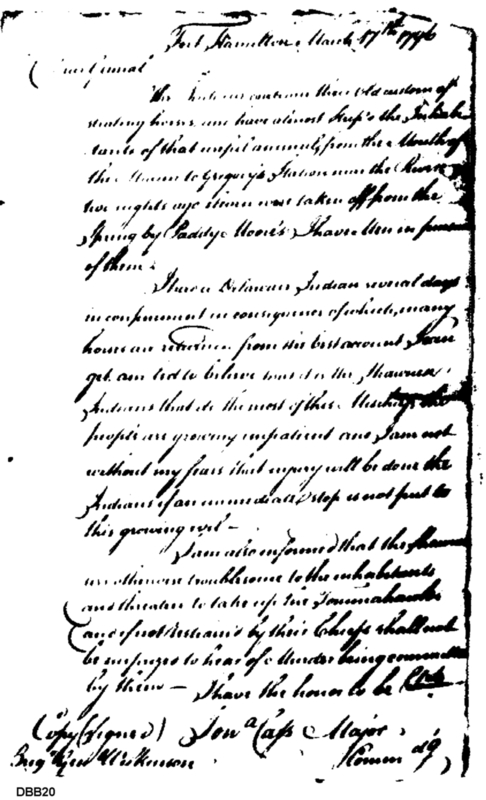 Fort Hamilton March 17th 1796
General
The Indians continue their old custom of
stealing horses, and have almost the Inhabi
tants of that useful animal, from the Mouth of
the Miami to Gregory's Station near the River
two nights ago were taken off from the
Spring by Paddy Moore's I have Men in pursuit
of them.
I have a Delaware Indian several days
in confinement in consequence of which, many
horses are from the best account I can
get, am led to believe it is the Shawnese
Indians that do the most of these Mischiefs the
people are growing impatient and I am not
without my fears that injury will be done the
Indians if an immediate stop is not put to
this growing evil —
I am also informed that the Shawnese
are otherwise troublesome to the inhabitants
and threaten to take up the Tommahawke
and if not restrain'd by their Chiefs shall not
be surprized to hear of a Murder being committed
by them — I have the honor to be
Copy (Signed) Jona Cass Major
Brig Genl Wilkinson Commd'g
DBB20